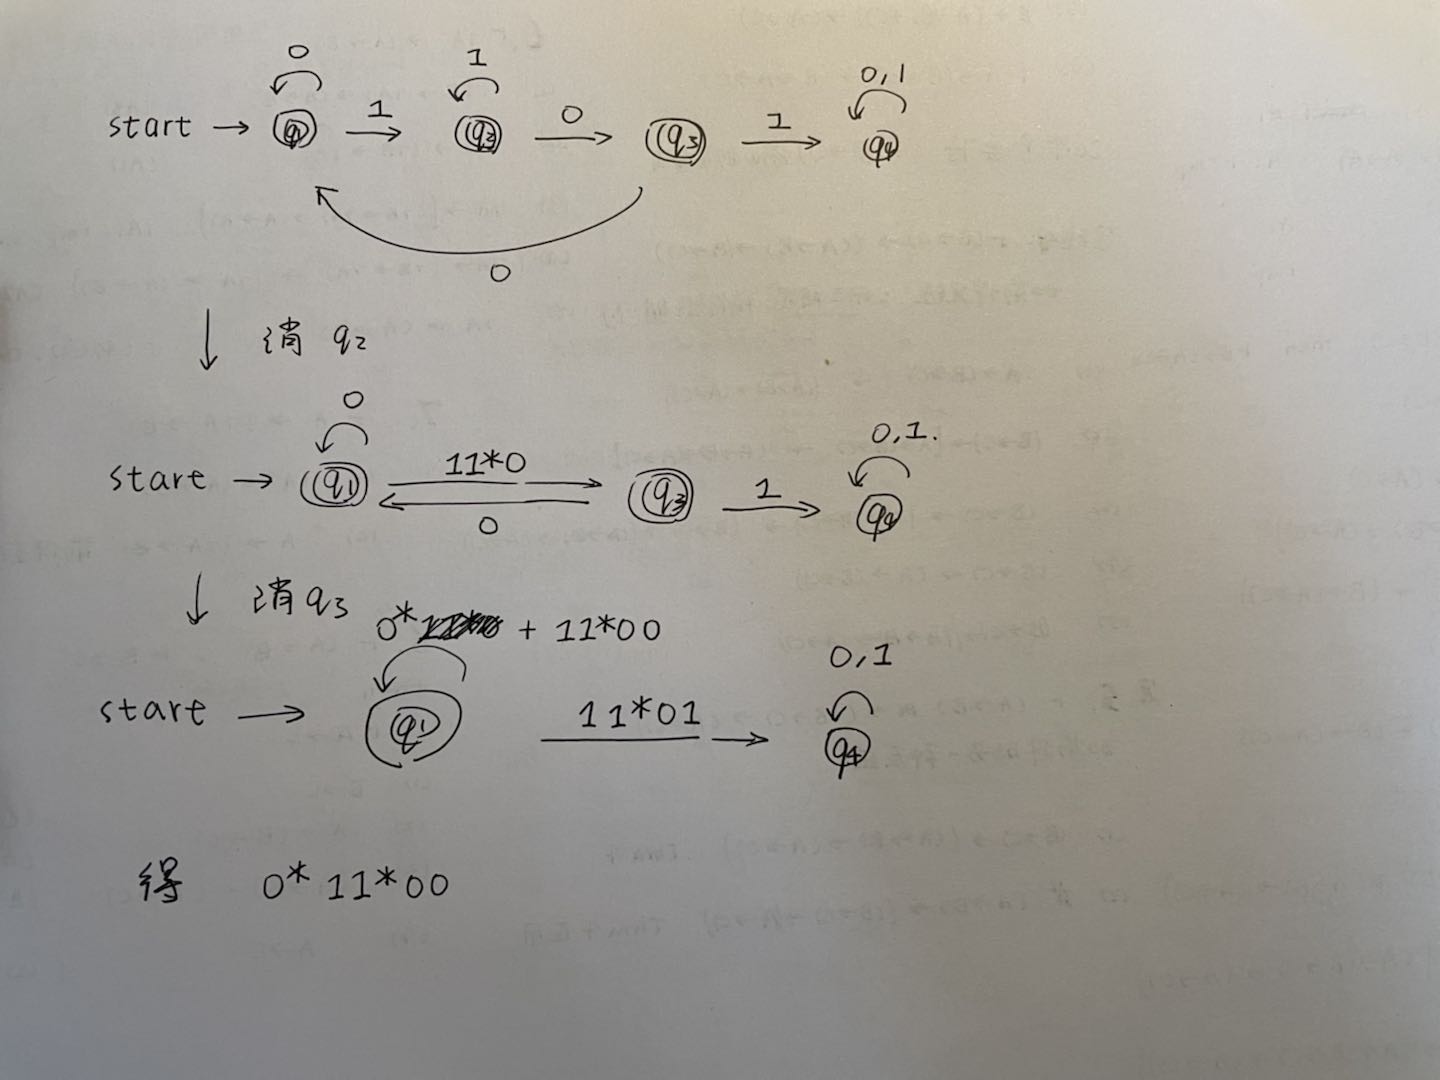 0 1 0,1
start → q1 1 q2 0 q3 1 q4
0
↓ 消 q2
0 0,1.
start → q1 11*0 q3 1 q4
0
↓ 消 q3
0* + 11*00
0,1
start → q1 11*01 q4
得 0* 11*00